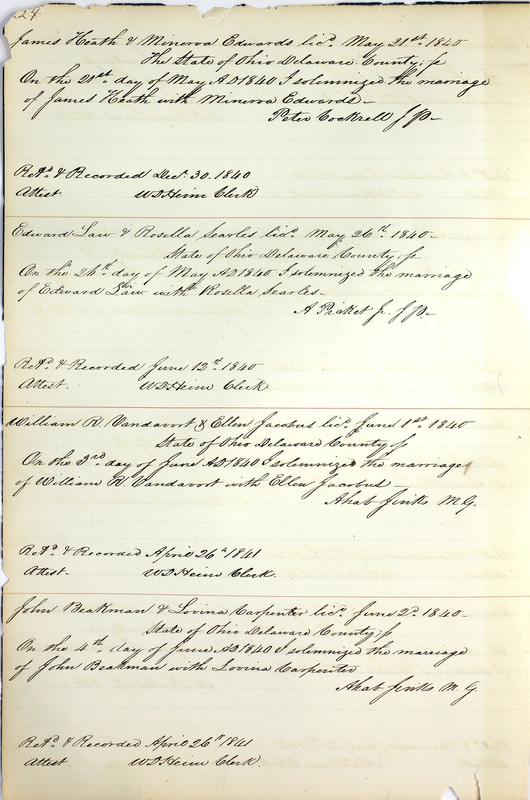 24
James Heath & Minerva Edwards licd. May 21st 1840
The State of Ohio Delaware County, ss
On the 21st day of May AD 1840 I solemnized the marriage
of James Heath with Minerva Edwards –
Peter Cockrell J P –
Retd. & Recorded Decr. 30. 1840
Attest. W D Heim Clerk
Edward Law & Rosella Searles licd. May 26th. 1840 –
State of Ohio Delaware County, ss
On the 26th. day of May AD 1840 I solemnized the marriage
of Edward Law with Rosella Searles –
A Picket Jr. J P –
Retd. & Recorded June 12th. 1840
Attest. W D Heim Clerk
William R. Vandavort & Ellen Jacobus licd. June 1st. 1840
State of Ohio Delaware County ss
On the 3rd. day of June AD 1840 I solemnized the marriage
of William R. Vandavort with Ellen Jacobus –
Ahab Jinks M. G.
Retd. & Recorded April 26th 1841
Attest. W D Heim Clerk.
John Beakman & Lovina Carpenter licd. June 2d. 1840 –
State of Ohio Delaware County, ss
On the 4th. day of June AD 1840 I solemnized the marriage
of John Beakman with Lovina Carpenter
Ahab Jinks M. G.
Retd. & Recorded April 26th 1841
Attest. W D Heim Clerk.